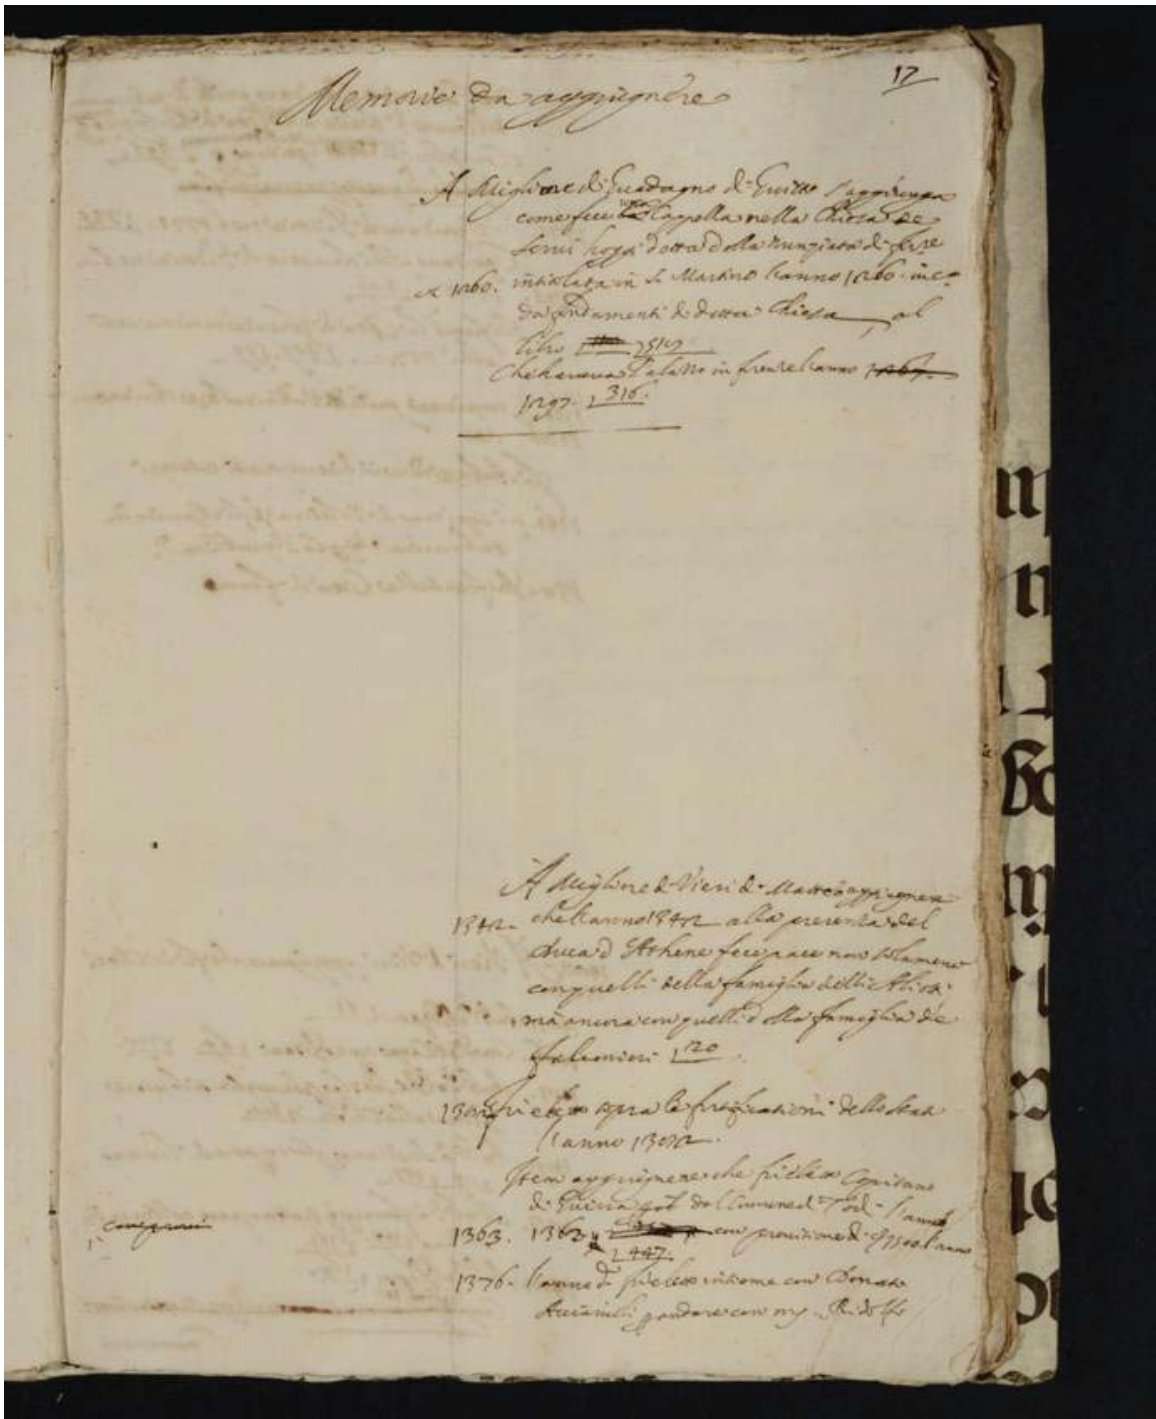 17
Memorie da aggiugnere
A Migliore di Guadagno di Guitto s'aggiunga
come fece una Cappella nella Chiesa de
Servi hoggi detta della Nunziata di Fire
1260. intitolata in S. Martino l'anno 1260. in c
da fondamenti di detta Chiesa, al
libro 517
Che haveva Palazzo in firenze l'anno 1267.
1297. 316.
A Migliore di Vieri di Matteo aggiugnere
1342. che l'anno 1342 alla presenza del
Duca d'Athene fece pace non solamente
con quelli della famiglia delli
ma ancora con quelli della famiglia de
falconieri 120
fu eletto sopra le fortificationi dello stato
l'anno
Item aggiugnere che fu eletto Capitano
di Guerra dal Comune di l'anno
1363. 1362 con provisione di l'anno
447.
1376. l'anno fu eletto insieme con Donato
Acciaiuoli andare con Ridolfo